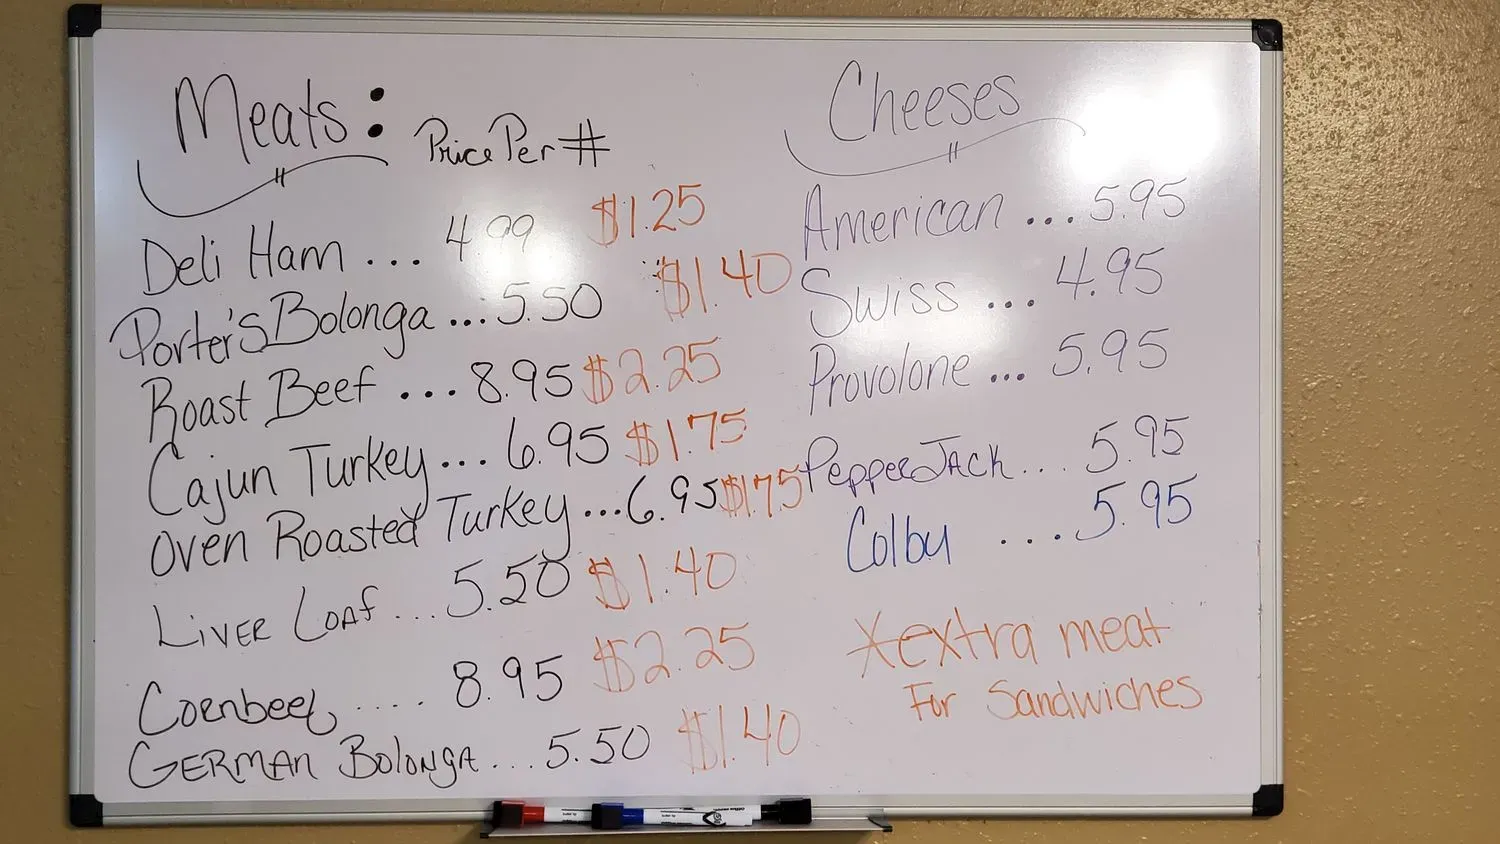 Meats: Price Per #
Deli Ham ... 4.99 $1.25
Porter's Bolonga ... 5.50 $1.40
Roast Beef ... 8.95 $2.25
Cajun Turkey ... 6.95 $1.75
Oven Roasted Turkey ... 6.95 $1.75
Liver Loaf ... 5.50 $1.40
Cornbeef .... 8.95 $2.25
German Bolonga ... 5.50 $1.40
Cheeses
American ... 5.95
Swiss ... 4.95
Provolone ... 5.95
PepperJack ... 5.95
Colby ... 5.95
*extra meat
For Sandwiches